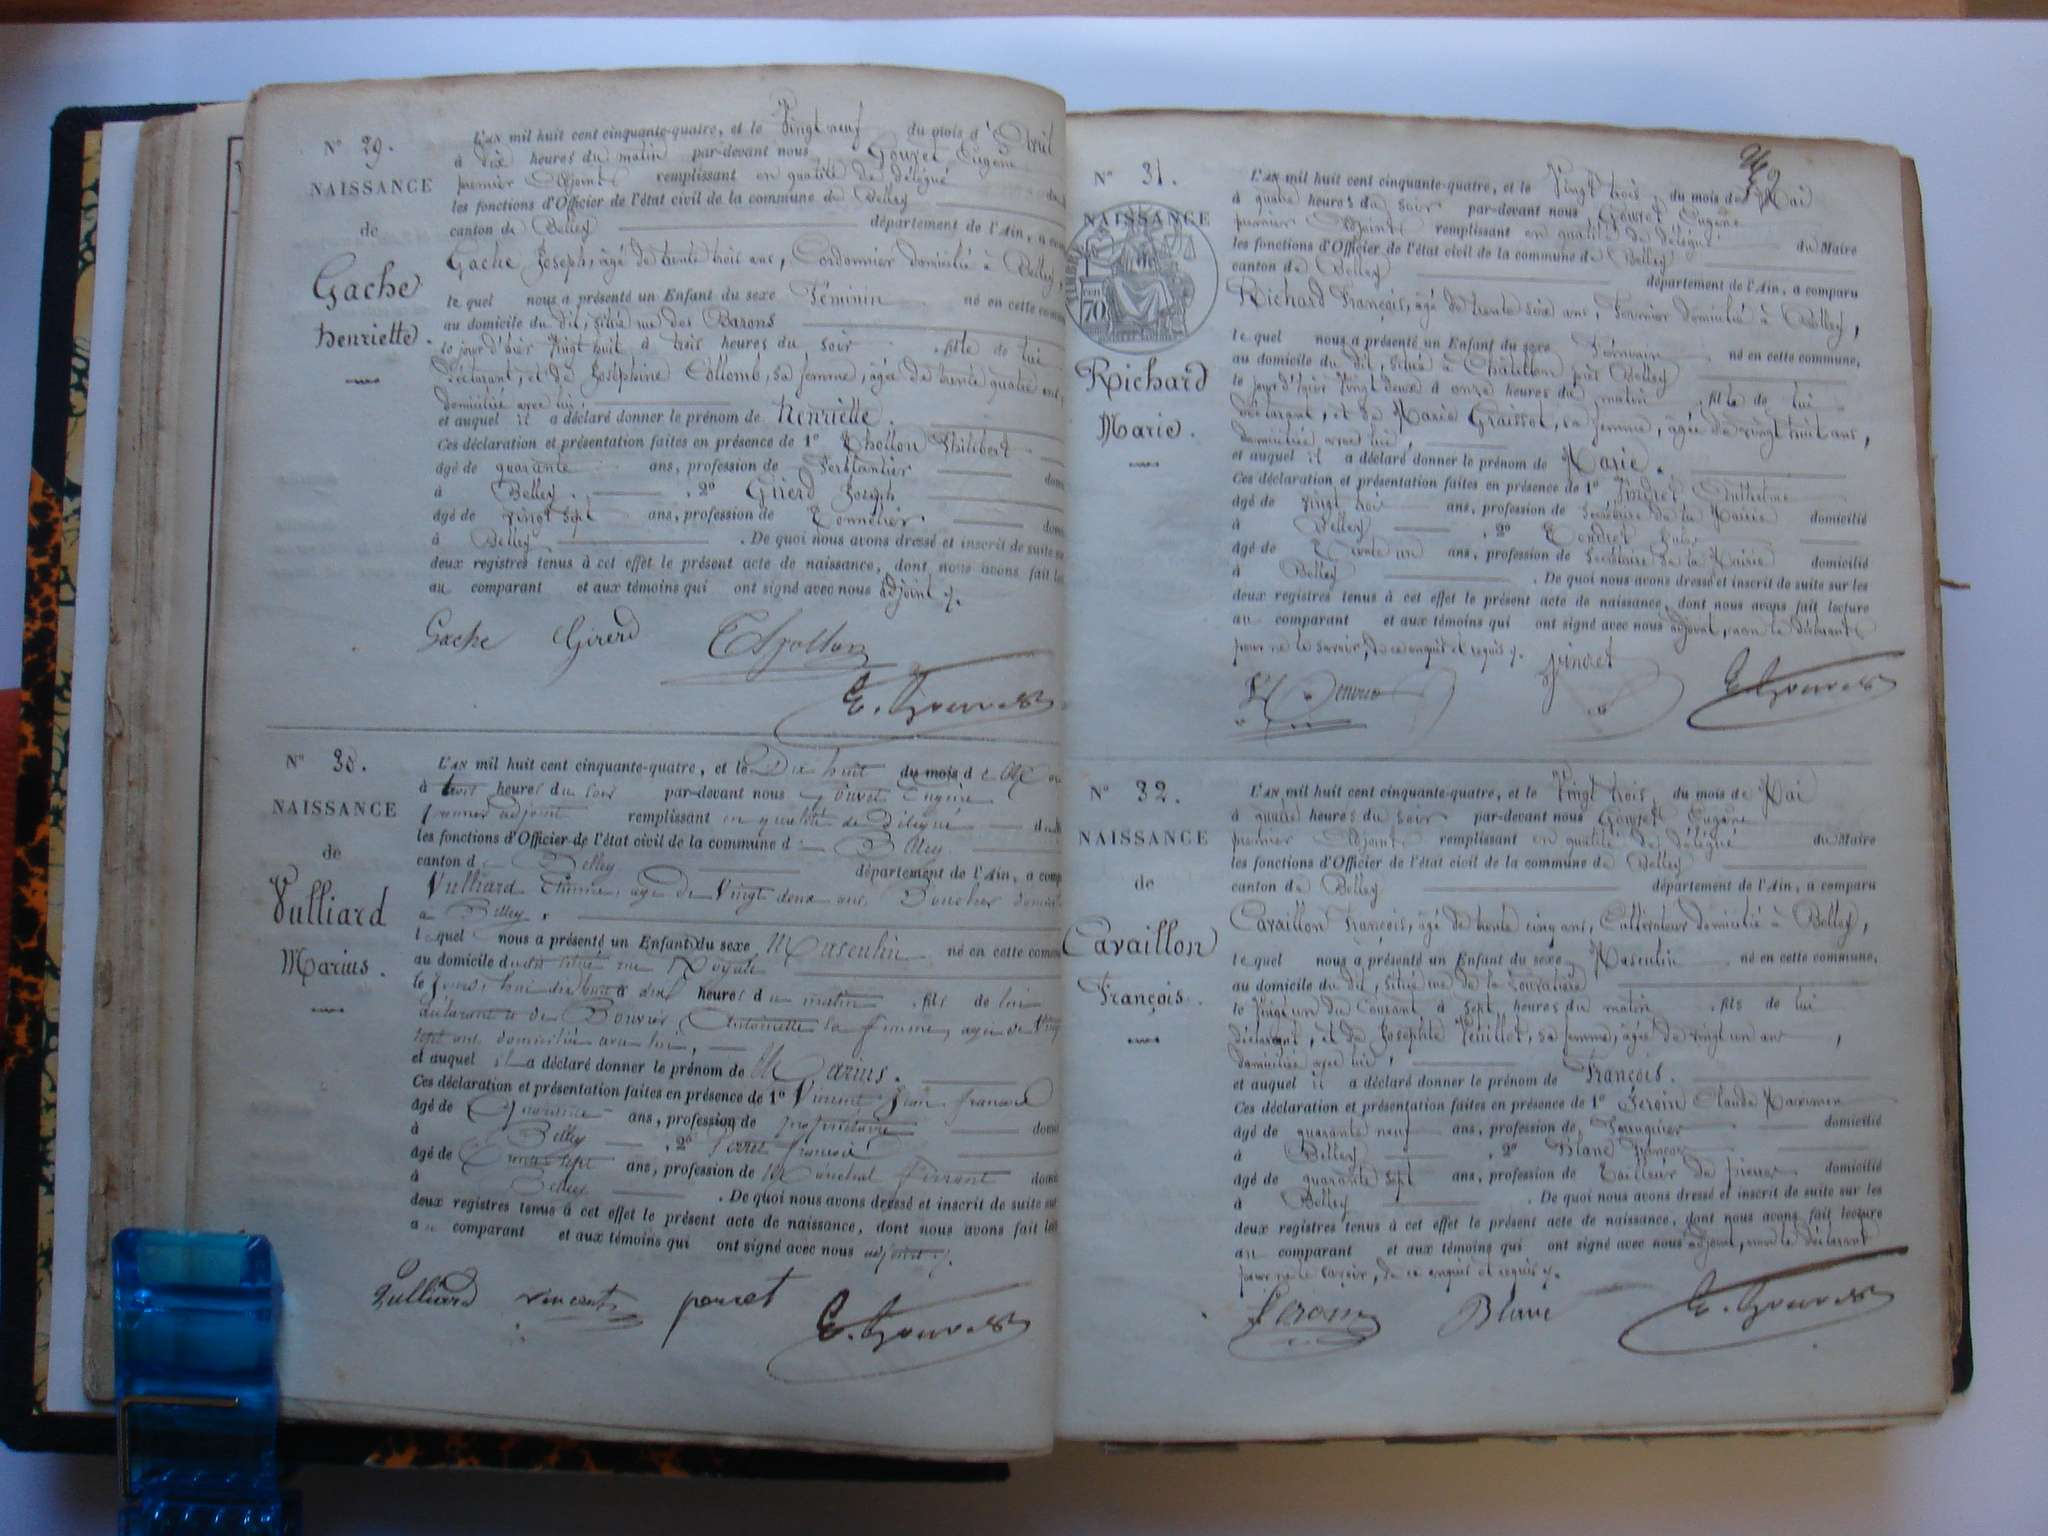 N° 29.
NAISSANCE
de
Gache
henriette.
L'AN mil huit cent cinquante-quatre, et le Vingt neuf du mois d'Avril
à dix heures du matin par-devant nous Gouvet Eugène
premier Adjoint remplissant en qualité de délégué
les fonctions d'Officier de l'état civil de la commune de Belley
canton de Belley département de l'Ain, a com
Gache Joseph, âgé de trente trois ans, Cordonnier domicilié à Belley,
le quel nous a présenté un Enfant du sexe féminin né en cette commune
au domicile du dit, situé rue des Barons
le jour d'hier vingt huit à trois heures du soir fille de lui
déclarant, et de Joséphine Collomb, sa femme, âgée de trente quatre ans,
domiciliée avec lui,
et auquel il a déclaré donner le prénom de henriette.
Ces déclaration et présentation faites en présence de 1° Thollon Philibert
âgé de quarante ans, profession de ferblantier
à Belley. , 2° Girerd Joseph
âgé de vingt sept ans, profession de Tonnelier
à Belley . De quoi nous avons dressé et inscrit de suite
deux registres tenus à cet effet le présent acte de naissance, dont nous avons fait
au comparant et aux témoins qui ont signé avec nous adjoint
Gache Girerd Thollon
E. Gouvet
N° 30.
NAISSANCE
de
Vulliard
Marius.
L'AN mil huit cent cinquante-quatre, et le Dix huit du mois de
à trois heures du soir par-devant nous Gouvet Eugène
premier adjoint remplissant en qualité de délégué
les fonctions d'Officier de l'état civil de la commune d Belley
canton d Belley département de l'Ain, a comp
Vulliard Etienne, âgé de Vingt deux ans, Boucher
à Belley,
lequel nous a présenté un Enfant du sexe Masculin né en cette commune
au domicile dudit situé rue Royale
le jourd'hui dix huit à deux heures du matin, fils de lui
déclarant et de Bouvier Antoinette sa femme, âgée de vingt
sept ans domiciliée avec lui,
et auquel il a déclaré donner le prénom de Marius.
Ces déclaration et présentation faites en présence de 1° Vincent Jean françois
âgé de Quarante ans, profession de propriétaire
à Belley , 2° Perret françois
âgé de Trente sept ans, profession de Maréchal ferrant
à Belley . De quoi nous avons dressé et inscrit de suite sur
deux registres tenus à cet effet le présent acte de naissance, dont nous avons fait
au comparant et aux témoins qui ont signé avec nous adjoint
Vulliard vincent perret
E. Gouvet
N° 31.
NAISSANCE
70
Richard
Marie.
L'AN mil huit cent cinquante-quatre, et le Vingt trois du mois de Mai
à quatre heures du soir par-devant nous Gouvet Eugène
premier Adjoint remplissant en qualité de délégué du Maire
les fonctions d'Officier de l'état civil de la commune de Belley
canton de Belley département de l'Ain, a comparu
Richard François, âgé de trente six ans, domicilié à Belley,
le quel nous a présenté un Enfant du sexe féminin né en cette commune,
au domicile du dit, situé à Châtillon près Belley
le jour d'hier Vingt deux à onze heures du matin, fille de lui
déclarant, et de Marie Graissot, sa femme, âgée de vingt huit ans,
domiciliée avec lui,
et auquel il a déclaré donner le prénom de Marie.
Ces déclaration et présentation faites en présence de 1° Jindret Anthelme
âgé de vingt trois ans, profession de Secrétaire de la Mairie domicilié
à Belley , 2°
âgé de Trente un ans, profession de Secrétaire de la Mairie domicilié
à Belley . De quoi nous avons dressé et inscrit de suite sur les
deux registres tenus à cet effet le présent acte de naissance, dont nous avons fait lecture
au comparant et aux témoins qui ont signé avec nous adjoint, non le déclarant
pour ne le savoir, de ce enquis et requis
Jindret
E. Gouvet
N° 32.
NAISSANCE
de
Cavaillon
François.
L'AN mil huit cent cinquante-quatre, et le Vingt trois du mois de Mai
à quatre heures du soir par-devant nous Gouvet Eugène
premier Adjoint remplissant en qualité de délégué du Maire
les fonctions d'Officier de l'état civil de la commune de Belley
canton de Belley département de l'Ain, a comparu
Cavaillon François, âgé de trente cinq ans, Cultivateur domicilié à Belley,
le quel nous a présenté un Enfant du sexe Masculin né en cette commune,
au domicile du dit, situé rue de la
le Vingt un du Courant à sept heures du matin, fils de lui
déclarant, et de Josephte Peuillot, sa femme, âgée de vingt un ans,
domiciliée avec lui,
et auquel il a déclaré donner le prénom de François.
Ces déclaration et présentation faites en présence de 1° Feroin Claude
âgé de quarante neuf ans, profession de domicilié
à Belley , 2° Blanc François
âgé de quarante sept ans, profession de Tailleur de pierres domicilié
à Belley . De quoi nous avons dressé et inscrit de suite sur les
deux registres tenus à cet effet le présent acte de naissance, dont nous avons fait lecture
au comparant et aux témoins qui ont signé avec nous adjoint, non le déclarant
pour ne le savoir, de ce enquis et requis
Feroin Blanc E. Gouvet